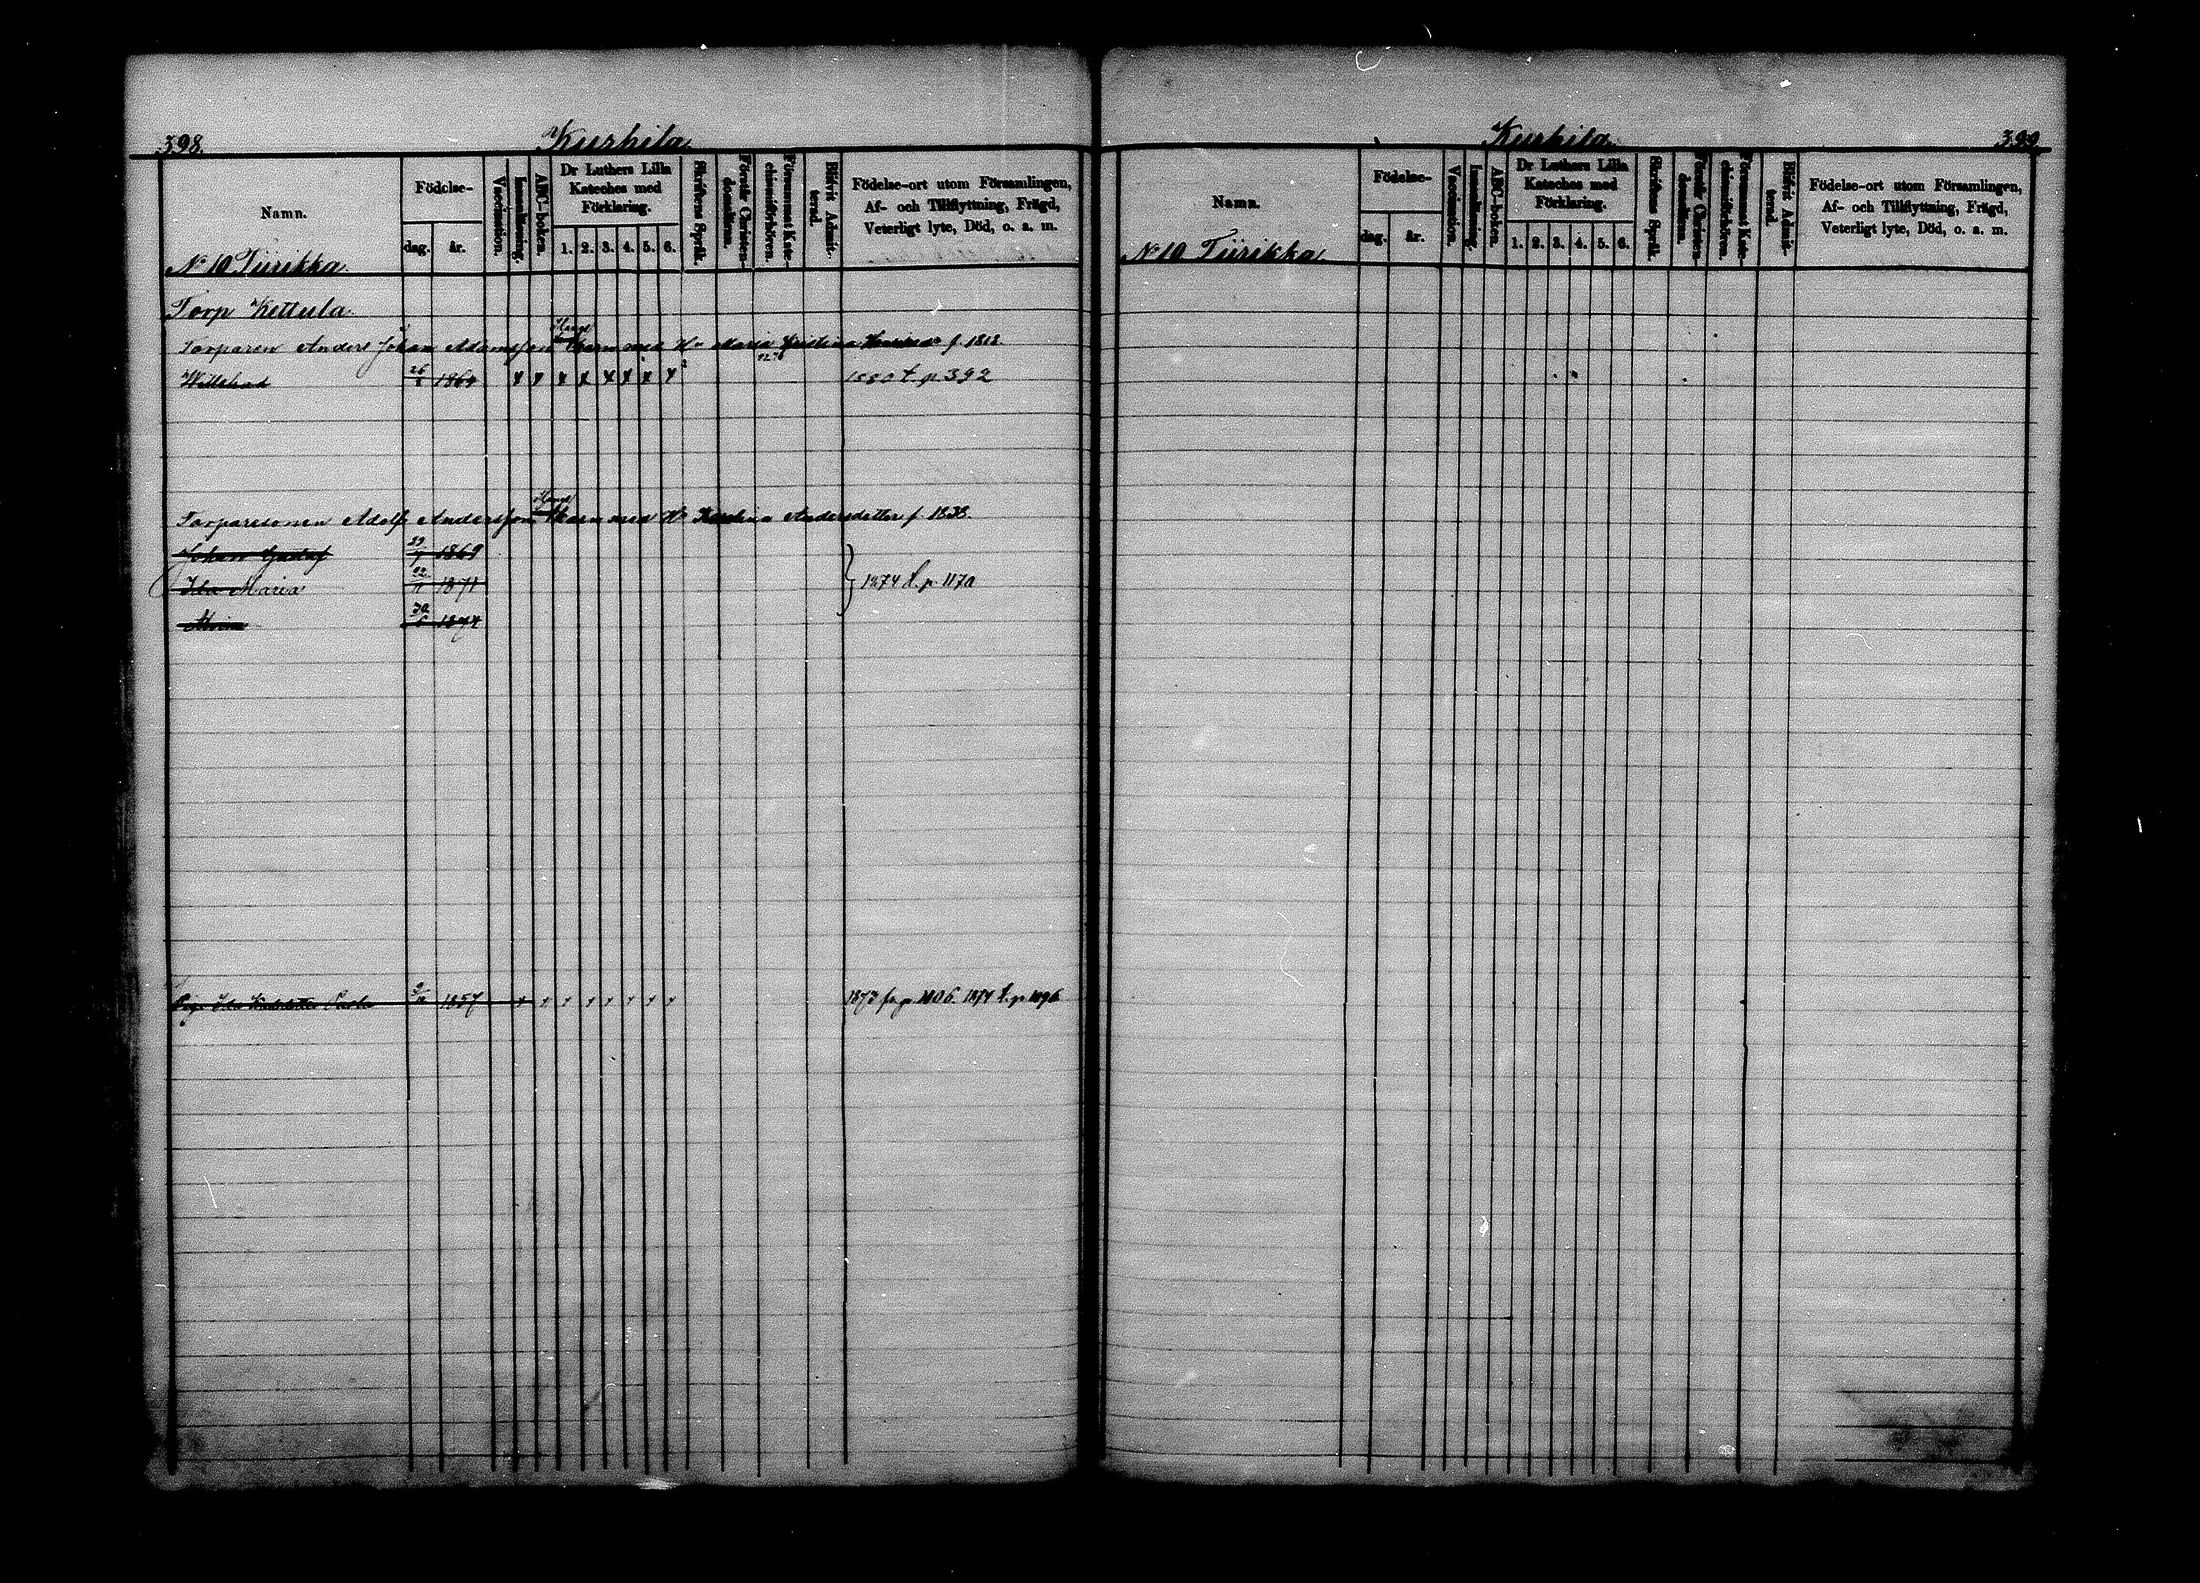 398.
Kurkila
Namn.
Födelse-
dag. år.
Vaccination.
Innanläsning.
ABC-boken.
Dr Luthers Lilla
Kateches med
Förklaring.
1. 2. 3. 4. 5. 6.
Skriftens Språk.
Förstår Christen-
domsläran.
Försummat Kate-
chismiförhören.
Blifvit Admit-
terad.
Födelse-ort utom Församlingen,
Af- och Tillflyttning, Frägd,
Veterligt lyte, Död, o. a. m.
N 10 Tiirikka
Torp Kettula
Torparen Anders Johan Adamsson Barn med Hu Maria f. 1818
26 1864 x x x x x x x x 1880 t. p 392
Torparesonen Adolf Andersson Barn med Hu Karolina Andersdotter f 1838.
Johan Gustaf 29 1869
Ida Maria 22 1871 1874 t. p 1170
30 1874
Ida 1857 x x x x x x x x 1873 fr p 1106. 1874 t. p 1096
Kurkila
399
Namn.
Födelse-
dag. år.
Vaccination.
Innanläsning.
ABC-boken.
Dr Luthers Lilla
Kateches med
Förklaring.
1. 2. 3. 4. 5. 6.
Skriftens Språk.
Förstår Christen-
domsläran.
Försummat Kate-
chismiförhören.
Blifvit Admit-
terad.
Födelse-ort utom Församlingen,
Af- och Tillflyttning, Frägd,
Veterligt lyte, Död, o. a. m.
N 10 Tiirikka